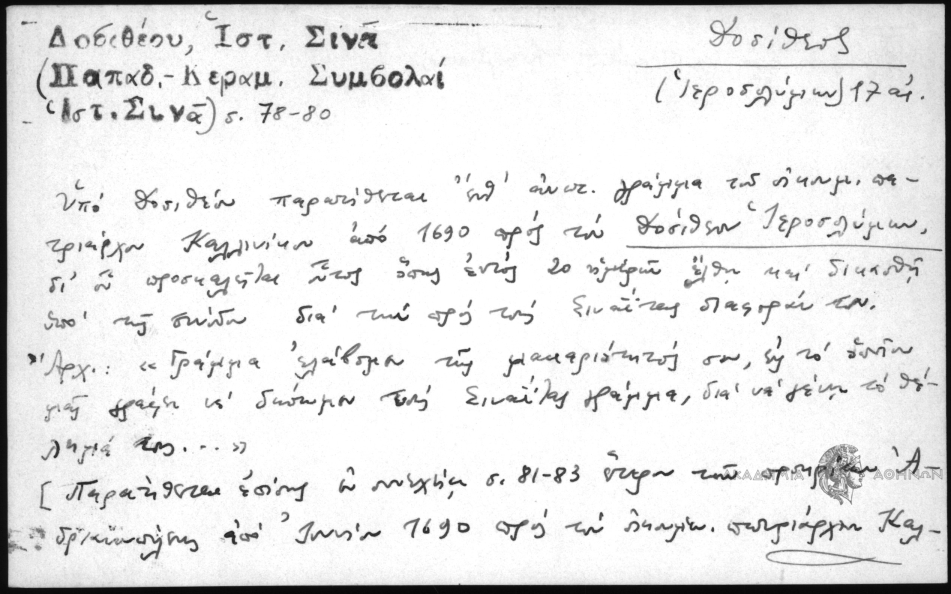 Δοσιθέου, Ἱστ. Σινᾶ
(Παπαδ.-Κεραμ. Συμβολαί
Ἱστ. Σινᾶ) σ. 78-80
Δοσίθεος
(Ἱεροσολύμων) 17 αἰ.
Ὑπό Δοσιθέου παρατίθεται ἐνθ' ἀνωτ. γράμμα τοῦ οἰκουμ. πα-
τριάρχου Καλλινίκου ἀπό 1690 πρός τόν Δοσίθεον Ἱεροσολύμων,
δι' οὗ προσκαλεῖται οὗτος ὅπως ἐντός 20 ἡμερῶν ἔλθῃ καί δικασθῇ
ὑπό τῆς συνόδου διά τήν πρός τούς Σιναΐτας διαφοράν του.
Ἀρχ.: «Γράμμα ἐλάβομεν τῆς μακαριότητός σου, εἰς τό ὁποῖον
μᾶς γράφει νά δώσωμεν τούς Σιναΐτας γράμμα, διά νά γένῃ τό θέ-
λημά τους...»
[Παρατίθεται ἐπίσης ἐν συνεχείᾳ σ. 81-83 ἕτερον τῶν προκρίτων Ἀ-
δριανουπόλεως ἀπό Ἰουνίου 1690 πρός τόν οἰκουμ. πατριάρχην Καλ-
ΑΚΑΔΗΜΙΑ ΑΘΗΝΩΝ